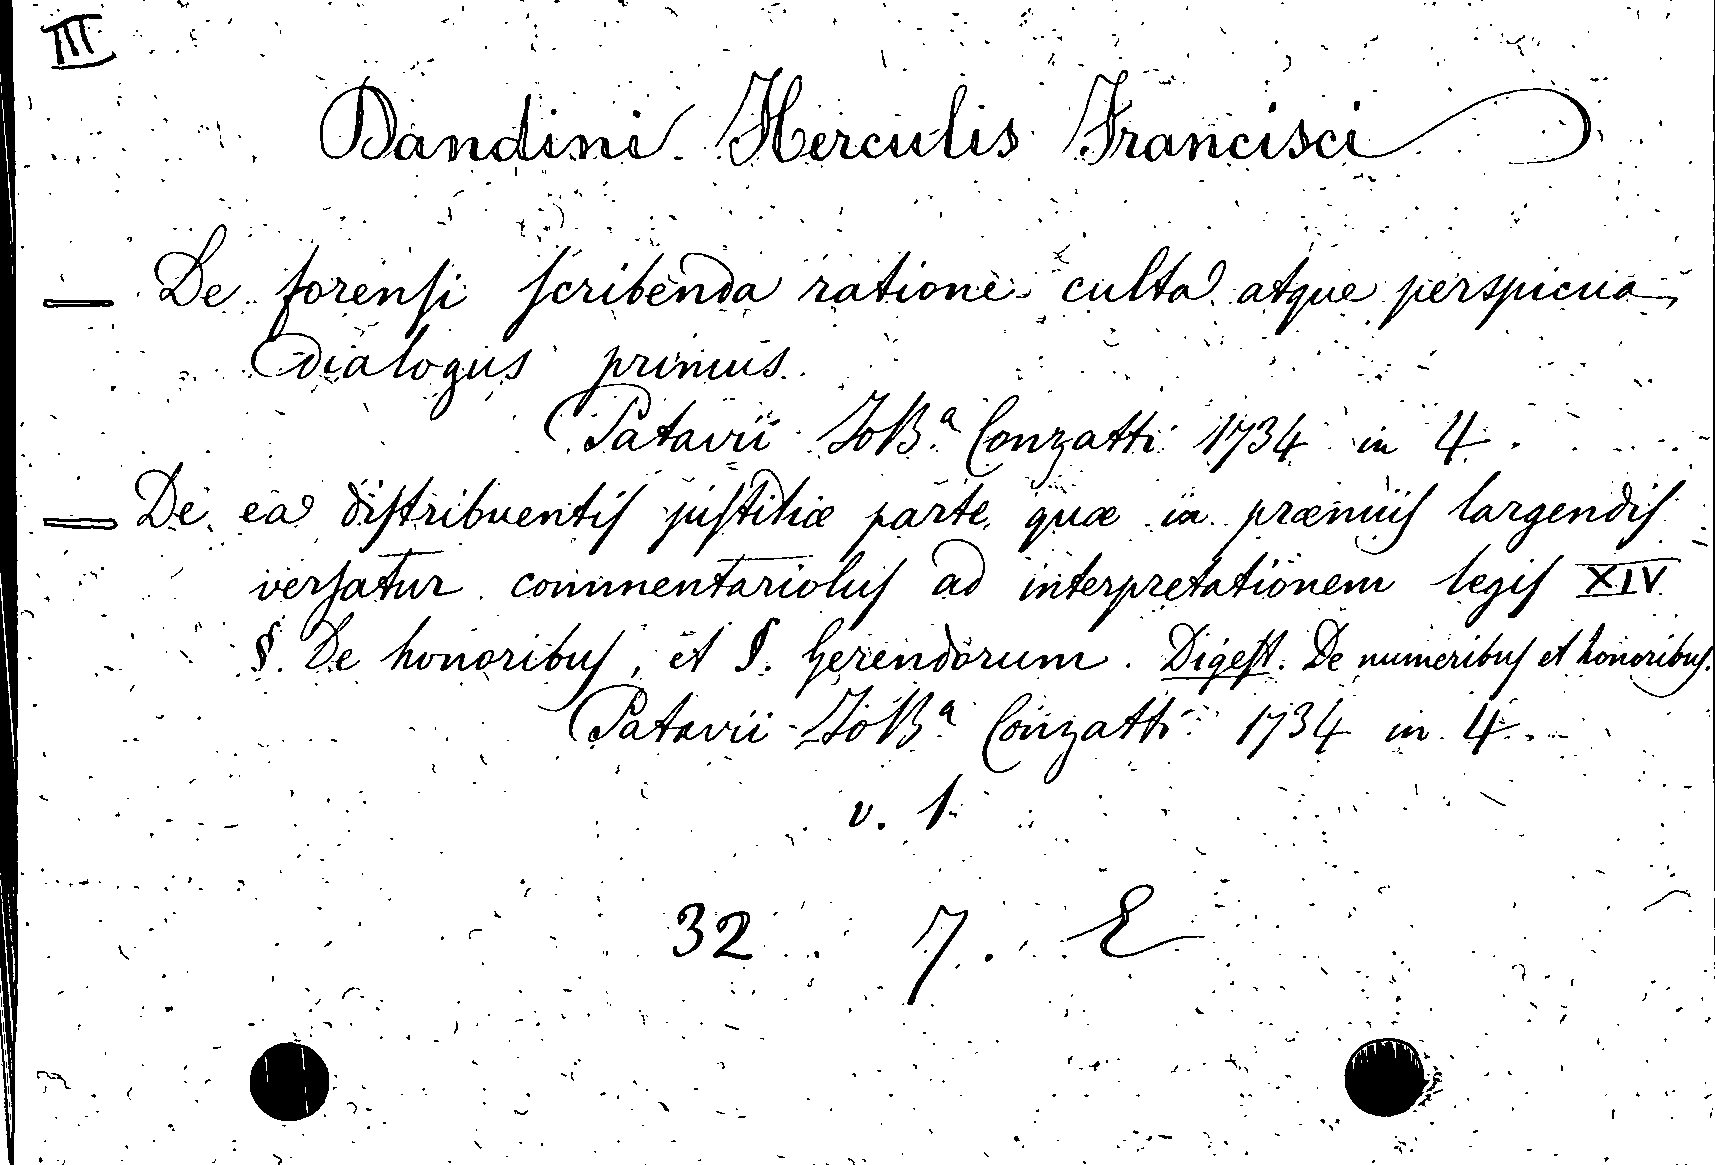 III
Dandini Herculis Francisci
— De forensi scribenda ratione culta atque perspicua
dialogus primus.
Patavii JoBa Conzatti 1734 in 4.
— De ea distribuentis justitiæ parte quæ in præmiis largendis
versatur commentariolus ad interpretationem legis XIV
§. De honoribus, et §. Gerendorum. Digest. De numeribus et honoribus.
Patavii JoBa Conzatti 1734 in 4.
v. 1
32 7. E